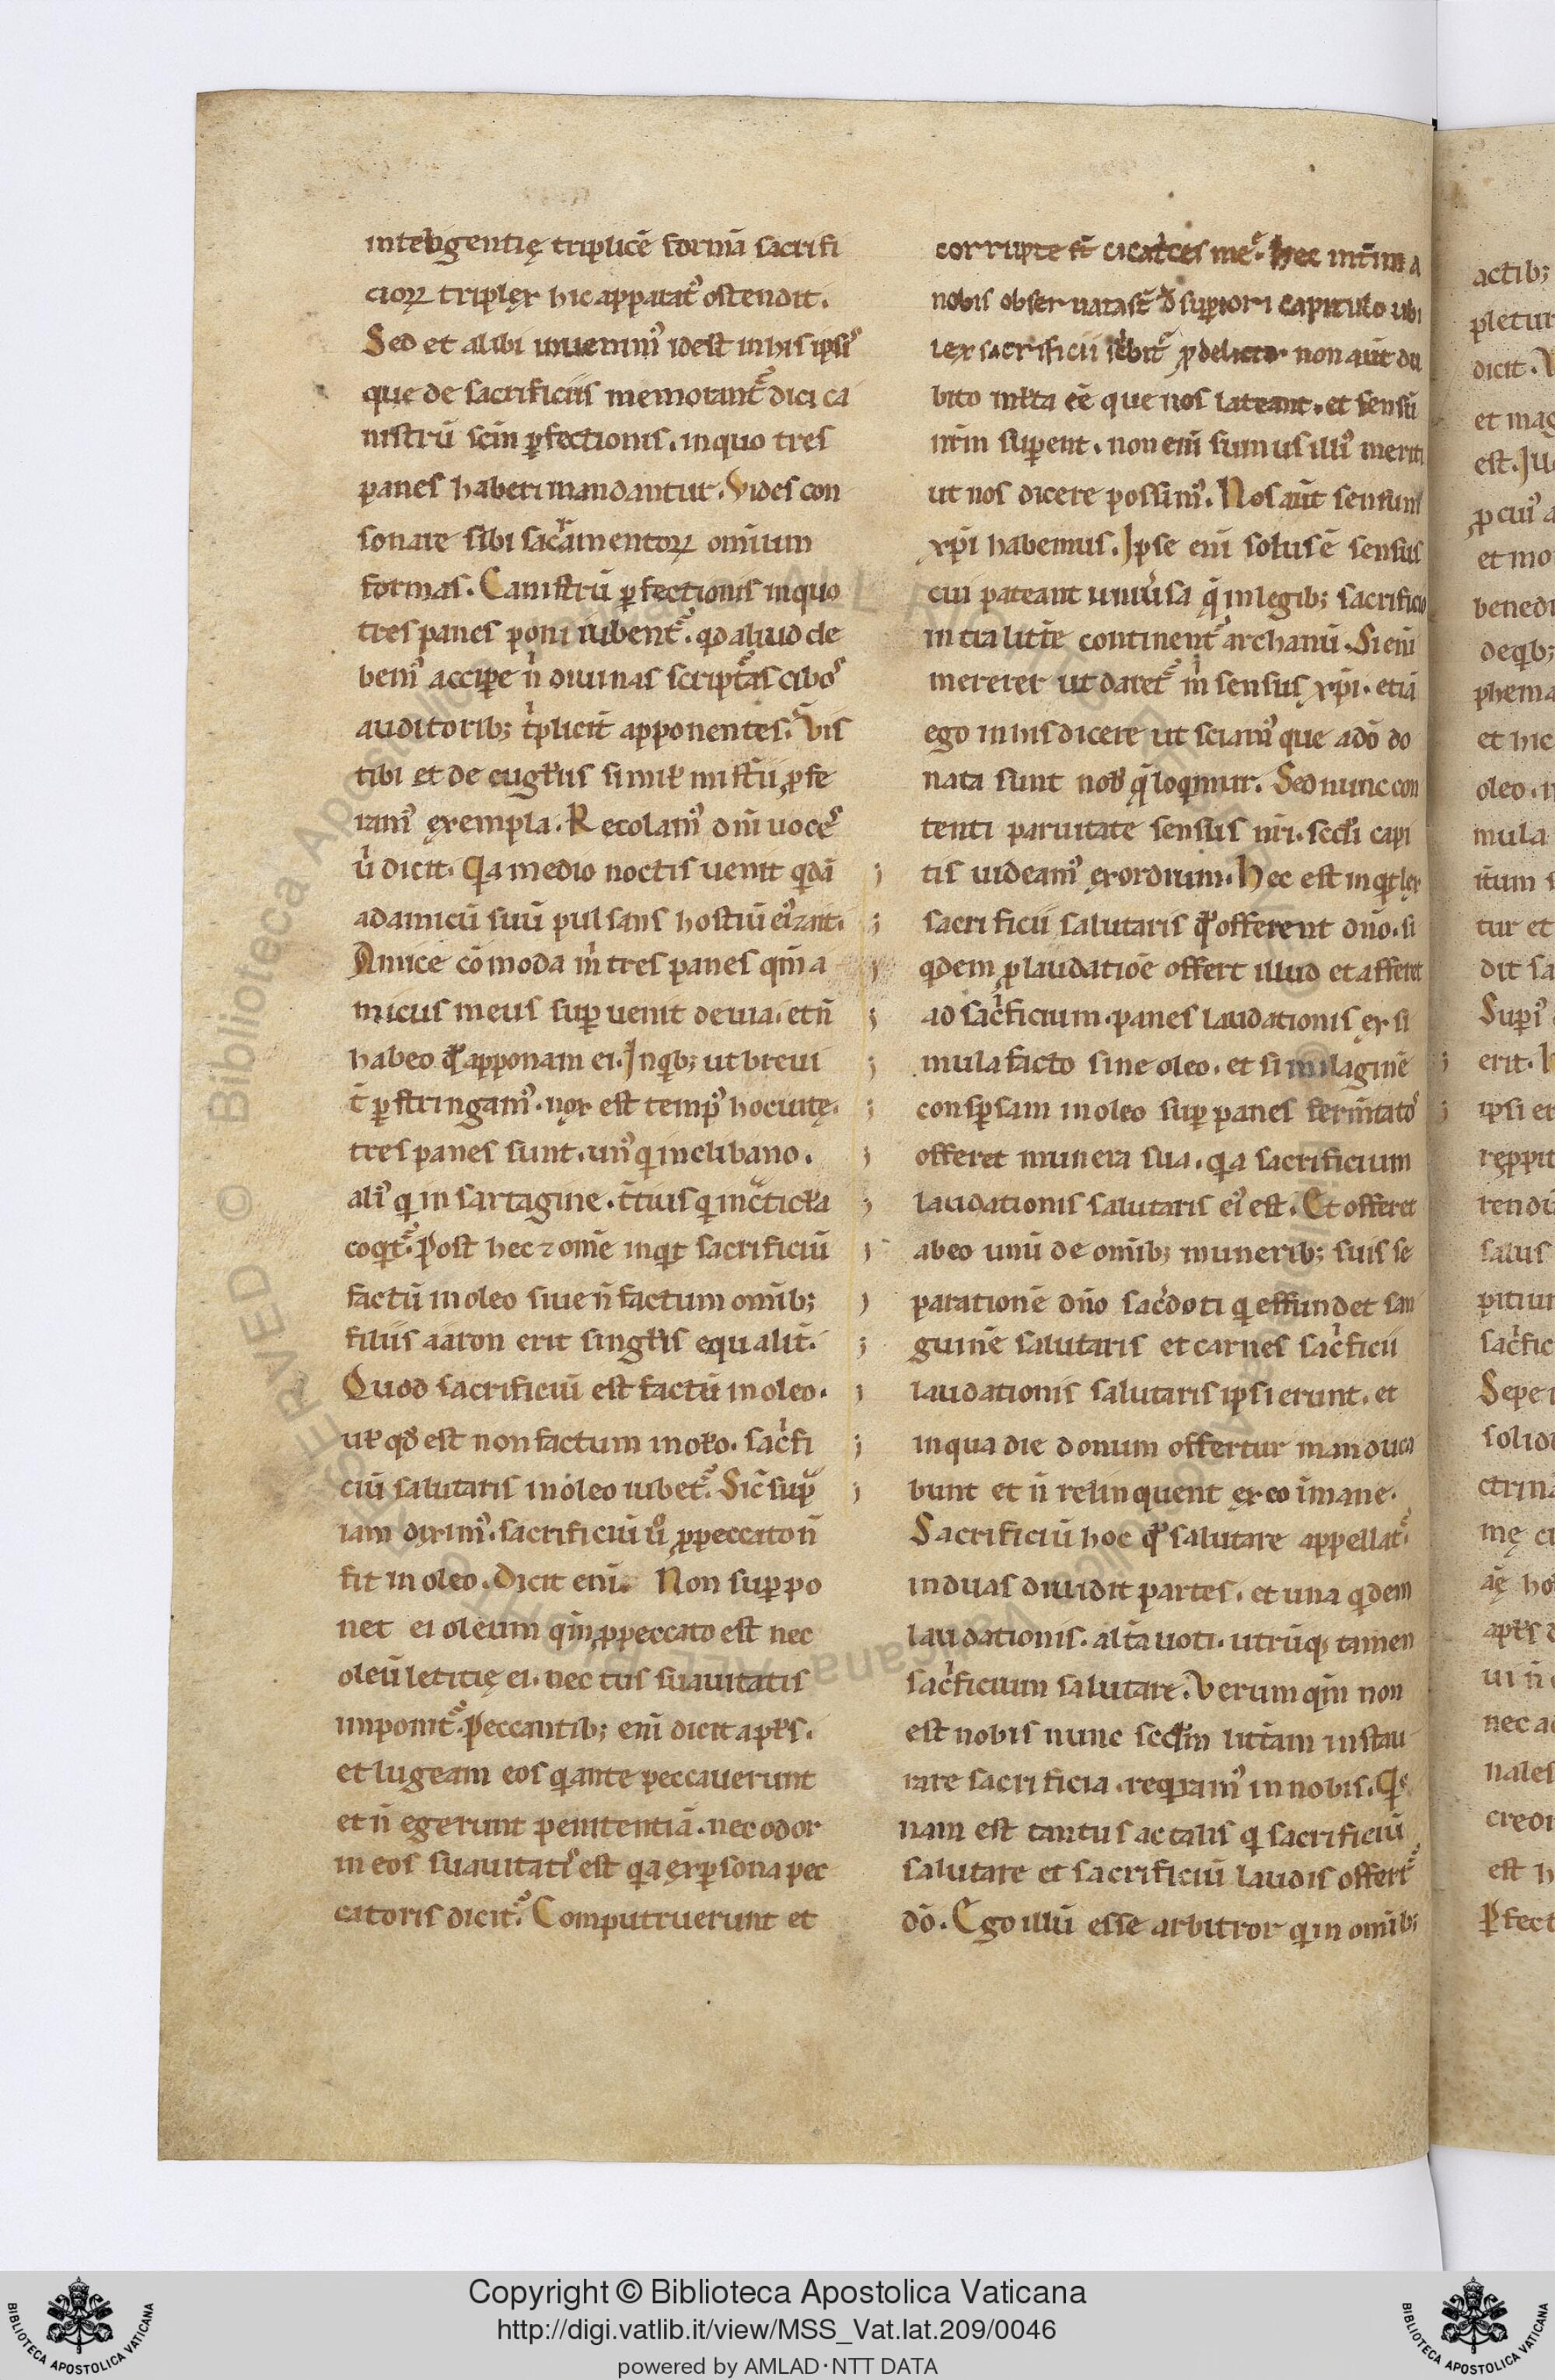 intellıgentię triplicē formā sacrifi
cioꝝ triplęx hic apparat᷒ ostendit.
Sed et alibi inuenim᷒ idest in his ipsi᷒
que de sacrificiis memorant᷑ dici ca
nistrū scīm ꝑfectionis. in quo tres
panes haberi mandantur. Vides con
sonare sibi sacr̄amentoꝝ omnium
formas. Canistrū ꝑfectionis in quo
tres panes poni iubent᷑. qd aliud de
bem᷒ accipe n̄ diuinas scripturas cibos
auditorib; tplicit̄ apponentes. Vis
tibi et de euglīis simile misteriū ꝓfe
ram᷒ ęxempla. Recolam᷒ dnī uocē
ū dicit. Qa medio noctis uenit qdā
ad amicū suū pulsans hostiū ei᷒ 7 ait.
Amice cōmoda m̄ tres panes qm̄ a
micus meus supuenit de uia. et n̄
habeo qd apponam ei. In qb; ut breui
t̄ ꝑstringam᷒. nox est temp᷒ hoc uitę.
tres panes sunt. un᷒ q in clibano.
ali᷒ q in sartagine. t̄tius q in craticla
coqt᷑. Post hec 7 omē inqt sacrificiū
factū in oleo siue n̄ factum omib;
filiis aaron erit singlis equalit̄.
Quod sacrificiū est factū in oleo.
uł qd est non factum in oleo. sacfi
ciū salutaris in oleo iubet᷑. Sic sup
iam dixim᷒. sacrificiū ů ꝓ peccato n̄
fit in oleo. Dicit enī. Non suppo
net ei oleum qm̄ ꝓ peccato est nec
oleū letitię ei. nec tus suauitatis
imponit᷑. Peccantib; enī dicit aplīs.
et lugeam eos q ante peccauerunt
et n̄ egerunt penitentiā. nec odor
in eos suauitatis est qa ex ꝑsona pec
catoris dicit᷑. Computruerunt et
corrupte st̄ cicatces mę. Hec int̄im a
nobis obseruata st̄ d superiori capitulo ubi
lex sacrificii scbit᷑ ꝓ delicto. non aut̄ du
bito mlta eē que nos lateant. et sensū
nrm̄ superent. non enī sumus illi᷒ meriti
ut nos dicere possim᷒. Nos aut̄ sensum
xpi habemus. Ipse enī solus ē sensus
cui pateant uniu̓sa q in legib; sacrificio
intra litt̄e continent᷑ archanū. Si enī
mererer ut daret᷑ m̄ sensus xpi. etiā
ego in his dicere ut sciam᷒ que a dō do
nata sunt nob q̄ loqmur. Sed nunc con
tenti paruitate sensus nri. scdi capi
tis uideam᷒ exordium. Hec est inqt lex
sacrificii salutaris qd offerent dn̄o. si
qdem ꝓ laudatioē offert illud et afferet
ad sacficium. panes laudationis ex si
mula facto sine oleo. et similaginē
conspsam in oleo sup panes fermtato᷒
offeret munera sua. qa sacrificium
laudationis salutaris ei᷒ est. Et offeret
ab eo unū de omib; munerib; suis se
parationē dn̄o sacdoti q effundet san
guinē salutaris et carnes sacficii
laudationis salutaris ipsi erunt. et
in qua die donum offertur manduca
bunt et n̄ relinquent ex eo i mane.
Sacrificiū hoc qd salutare appellat᷑
in duas diuidit partes. et una qdem
laudationis. alta uoti. utrūq; tamen
sacficium salutare. Verum qm̄ non
est nobis nunc scdm litt̄am instau
rare sacrificia. reqram᷒ in nobis. Qs
nam est tantus ac talis q sacrificiū
salutare et sacrificiū laudis offert
dō. Ego illū esse arbitror q in omib;
actib;
pletur
dicit. V
et mag
est. Iu
ꝓ cui᷒ a
et mo
benedi
deqb;
phema
et hic
oleo. n
mula
itum s
tur et
dit sa
Sup᷒
erit. h
ipsi er
reppit
rendū
salus
pitiu
sacfic
Sepe
solidi
ctrina
mę ci
aę ho
aplīs d
ui n̄
nec ac
nales
credi
est h
Pfect
Copyright © Biblioteca Apostolica Vaticana
http://digi.vatlib.it/view/MSS_Vat.lat.209/0046
powered by AMLAD·NTT DATA
BIBLIOTECA APOSTOLICA VATICANA
BIBLIOTECA APOSTOLICA VATICANA